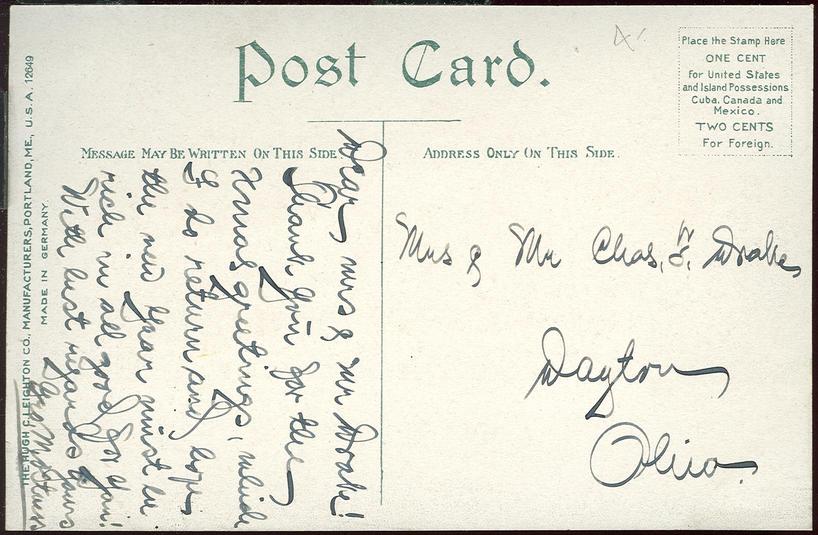 Post Card.
Place the Stamp Here
ONE CENT
for United States
and Island Possessions
Cuba, Canada and
Mexico.
TWO CENTS
For Foreign.
MESSAGE MAY BE WRITTEN ON THIS SIDE
ADDRESS ONLY ON THIS SIDE.
THE HUGH C. LEIGHTON CO., MANUFACTURERS, PORTLAND, ME., U.S.A. 12649
MADE IN GERMANY.
Dear Mrs & Mr Drake!
Thank you for the
Xmas greetings, which
I do return and hope
the new year must be
rich in all good for you!
With best regards yours
Mrs & Mr Chas. Drake,
Dayton
Ohio.